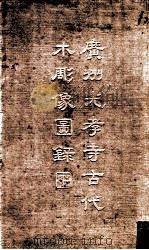 廣州光孝寺古代
木彫像圖錄